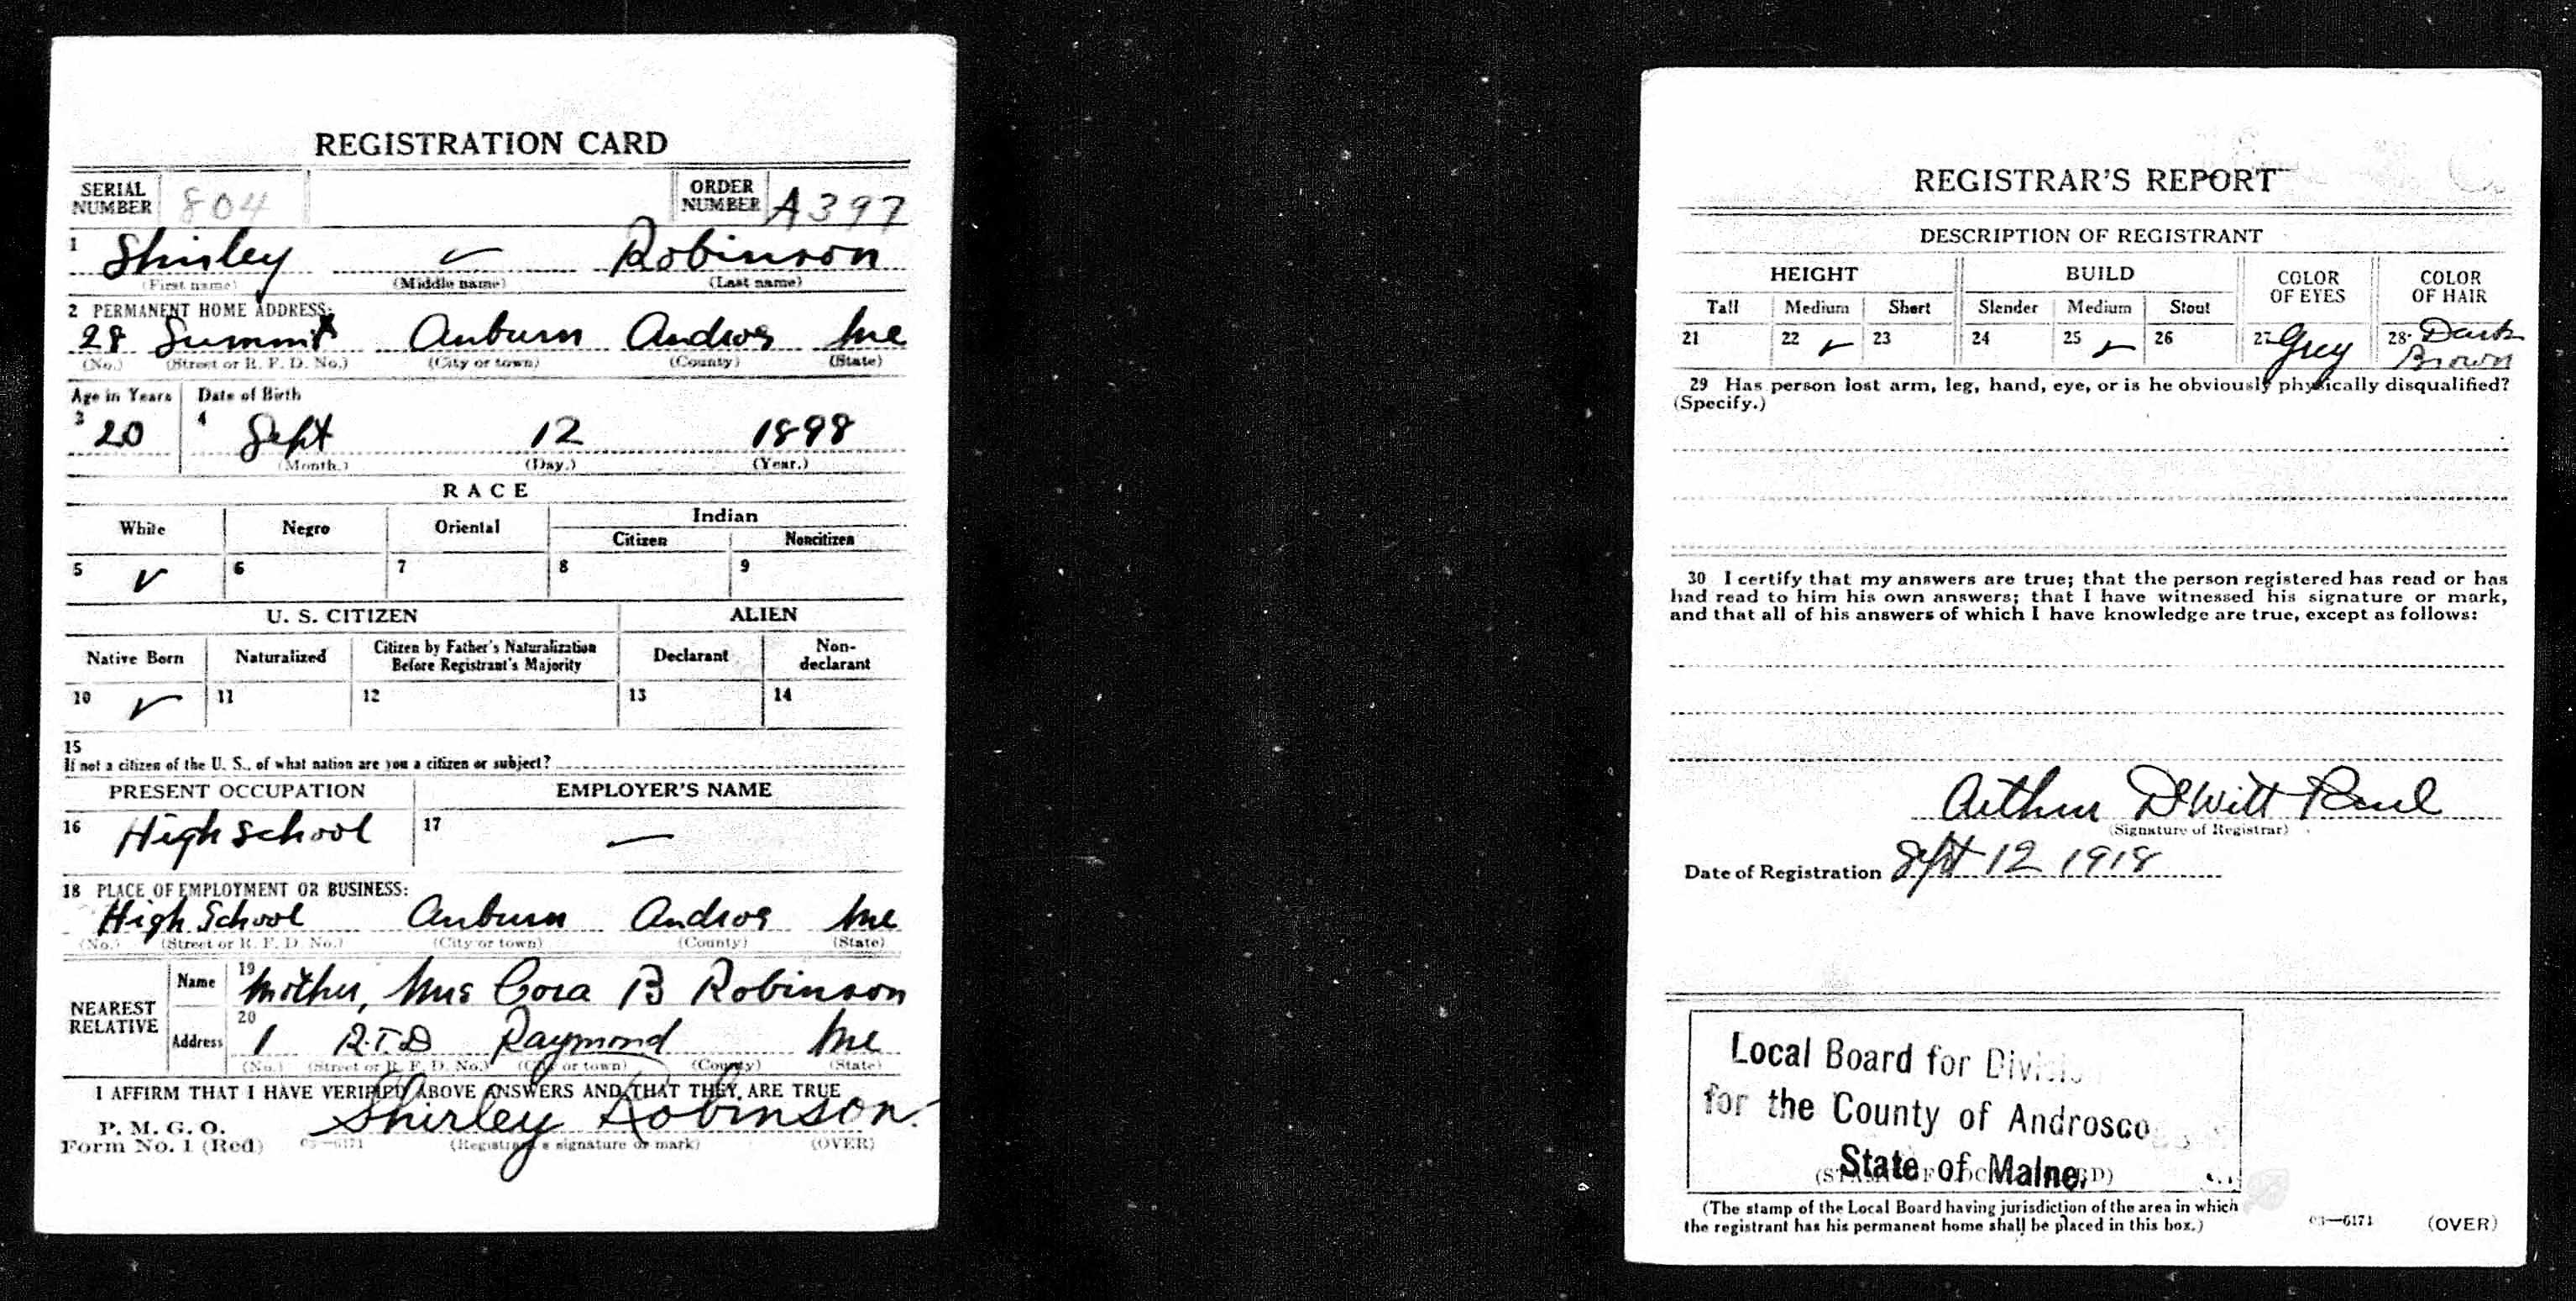 REGISTRATION CARD
SERIAL NUMBER 804 ORDER NUMBER A397
1 Shirley ✓ Robinson
(First name) (Middle name) (Last name)
2 PERMANENT HOME ADDRESS:
28 Summit Auburn Andros Me
(No.) (Street or R. F. D. No.) (City or town) (County) (State)
Age in Years Date of Birth
3 20 4 Sept 12 1898
(Month.) (Day.) (Year.)
RACE
White Negro Oriental Indian
Citizen Noncitizen
5 ✓ 6 7 8 9
U. S. CITIZEN ALIEN
Native Born Naturalized Citizen by Father's Naturalization Before Registrant's Majority Declarant Non-declarant
10 ✓ 11 12 13 14
15
If not a citizen of the U. S., of what nation are you a citizen or subject?
PRESENT OCCUPATION EMPLOYER'S NAME
16 High School 17 —
18 PLACE OF EMPLOYMENT OR BUSINESS:
High School Auburn Andros Me
(No.) (Street or R. F. D. No.) (City or town) (County) (State)
NEAREST RELATIVE
Name 19 Mother, Mrs Cora B Robinson
Address 20 1 R.F.D Raymond Me
(No.) (Street or R. F. D. No.) (City or town) (County) (State)
I AFFIRM THAT I HAVE VERIFIED ABOVE ANSWERS AND THAT THEY ARE TRUE
P. M. G. O.
Form No. 1 (Red) 03—6171 Shirley Robinson.
(Registrant's signature or mark) (OVER)
REGISTRAR'S REPORT
DESCRIPTION OF REGISTRANT
HEIGHT BUILD COLOR OF EYES COLOR OF HAIR
Tall Medium Short Slender Medium Stout
21 22 ✓ 23 24 25 ✓ 26 27 Grey 28 Dark Brown
29 Has person lost arm, leg, hand, eye, or is he obviously physically disqualified?
(Specify.)
30 I certify that my answers are true; that the person registered has read or has
had read to him his own answers; that I have witnessed his signature or mark,
and that all of his answers of which I have knowledge are true, except as follows:
Arthur DeWitt Paul
(Signature of Registrar)
Date of Registration Sept 12 1918
Local Board for
for the County of Androsco
State of Maine.
(The stamp of the Local Board having jurisdiction of the area in which
the registrant has his permanent home shall be placed in this box.)
03—6171 (OVER)